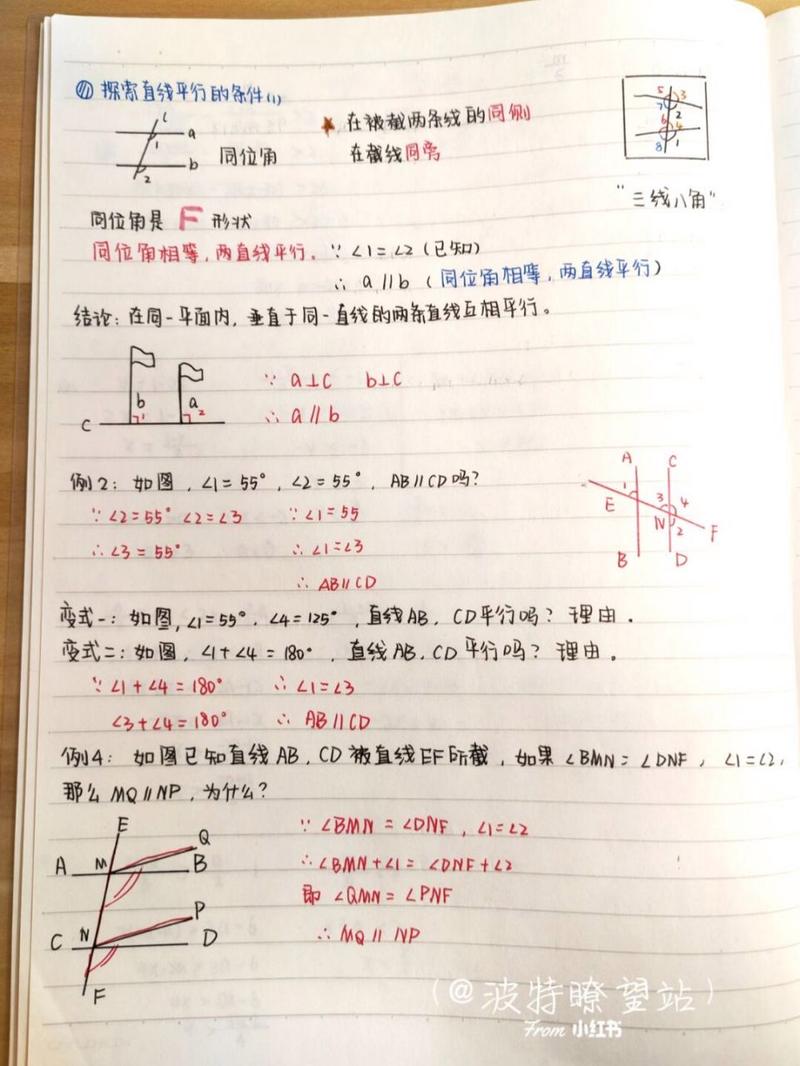 ⑪ 探索直线平行的条件(1)
l
a
1
b
2
同位角
★ 在被截两条线的同侧
在截线同旁
5 3
7 2
6 4
8 1
"三线八角"
同位角是 F 形状
同位角相等,两直线平行。 ∵ ∠1=∠2(已知)
∴ a∥b(同位角相等,两直线平行)
结论:在同一平面内,垂直于同一直线的两条直线互相平行。
b a
1 2
C
∵ a⊥c b⊥c
∴ a∥b
例2:如图,∠1=55°,∠2=55°,AB∥CD吗?
∵∠2=55° ∠2=∠3 ∵∠1=55
∴∠3=55° ∴∠1=∠3
∴ AB∥CD
A C
1 3 4
E N 2 F
B D
变式一:如图,∠1=55°,∠4=125°,直线AB,CD平行吗?理由。
变式二:如图,∠1+∠4=180°,直线AB,CD平行吗?理由。
∵∠1+∠4=180° ∴∠1=∠3
∠3+∠4=180° ∴ AB∥CD
例4:如图已知直线AB,CD被直线EF所截,如果∠BMN=∠DNF,∠1=∠2,
那么MQ∥NP,为什么?
E
Q
A M B
P
C N D
F
∵ ∠BMN=∠DNF,∠1=∠2
∴∠BMN+∠1=∠DNF+∠2
即 ∠QMN=∠PNF
∴ MQ∥NP
(@波特瞭望站)
From 小红书